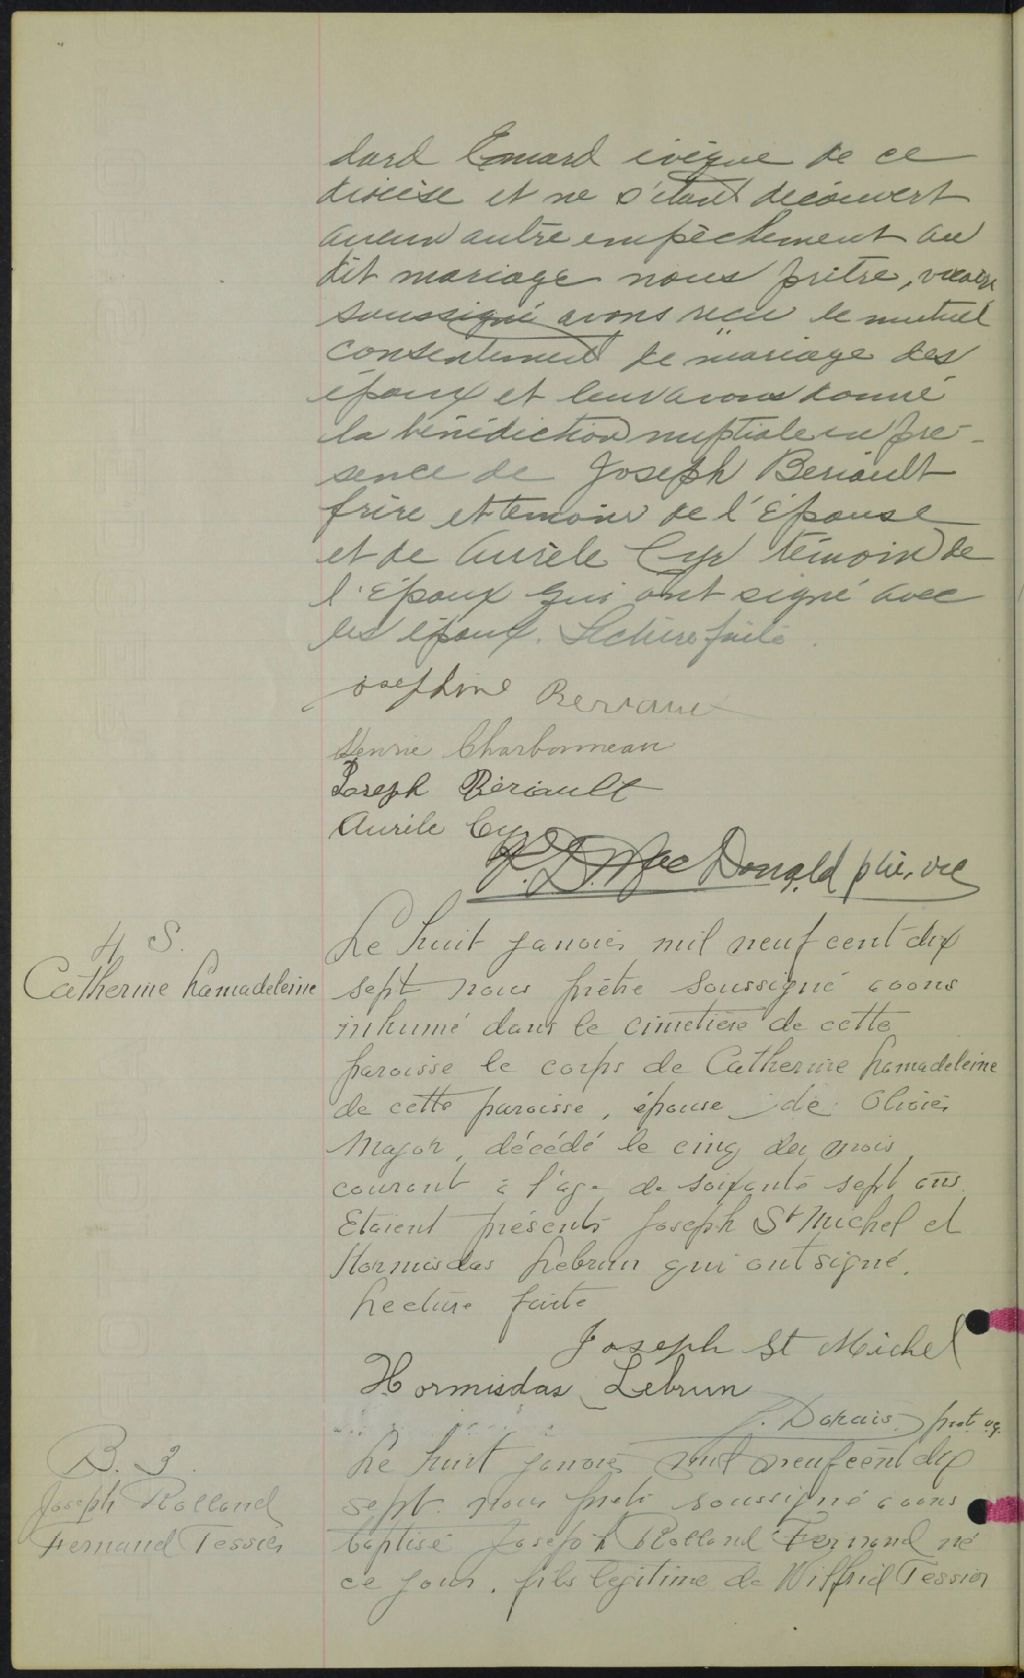 dard Emard évèque de ce
diocèse et ne s'étant découvert
aucun autre empêchement au
dit mariage nous prêtre, vicaire
soussigné avons recu le mutuel
consentement de mariage des
époux et leur avons donné
la bénédiction nuptiale en pré-
sence de Joseph Beriault
frère et témoin de l'Épouse
et de Aurèle Cyr témoin de
l'Époux qui ont signé avec
les époux. Lecture faite.
Josephine Beriault
Henrie Charbonneau
Joseph Bériault
Aurèle Cyr
D. MacDonald ptre, vic
4 S.
Catherine Lamadeleine
Le huit janvier mil neuf cent dix
sept nous prêtre soussigné avons
inhumé dans le cimetière de cette
paroisse le corps de Catherine Lamadeleine
de cette paroisse, épouse de Olivier
Major, décédé le cinq du mois
courant à l'age de soixante sept ans.
Etaient présents Joseph St Michel et
Hormisdas Lebrun qui ont signé.
Lecture faite
Joseph St Michel
Hormisdas Lebrun
J. Dorais
B. 3.
Joseph Rolland
Fernand Tessier
Le huit janvier mil neuf cent dix
sept nous prêtre soussigné avons
baptisé Joseph Rolland Fernand né
ce jour, fils légitime de Wilfrid Tessier